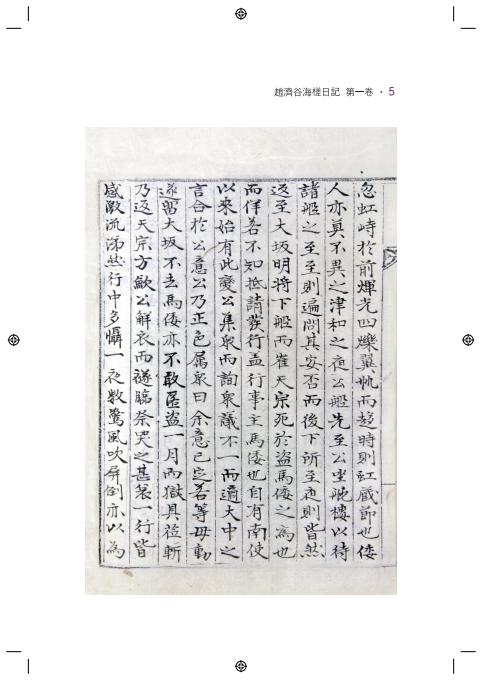 趙濟谷海槎日記 第一卷 · 5
忽虹峙於前煇光四爍翼帆而趍時則虹藏節也倭
人亦莫不異之津和之夜公船先至公坐柁樓以待
諸船之至至則遍問其安否而後下所至夜則皆然
返至大坂明將下船而崔天宗死於盜馬倭之為也
而佯若不知抵請發行盖行事主馬倭也自有南使
以來始有此變公集衆而詢衆議不一而適大中之
言合於公意公乃正色厲衆曰余意已定若等毋動
遂留大坂不去馬倭亦不敢匿盜一月而獄具莅斬
乃返天宗方斂公解衣而襚臨祭哭之甚哀一行皆
感激流涕然行中多懾一夜數驚風吹屏倒亦以為